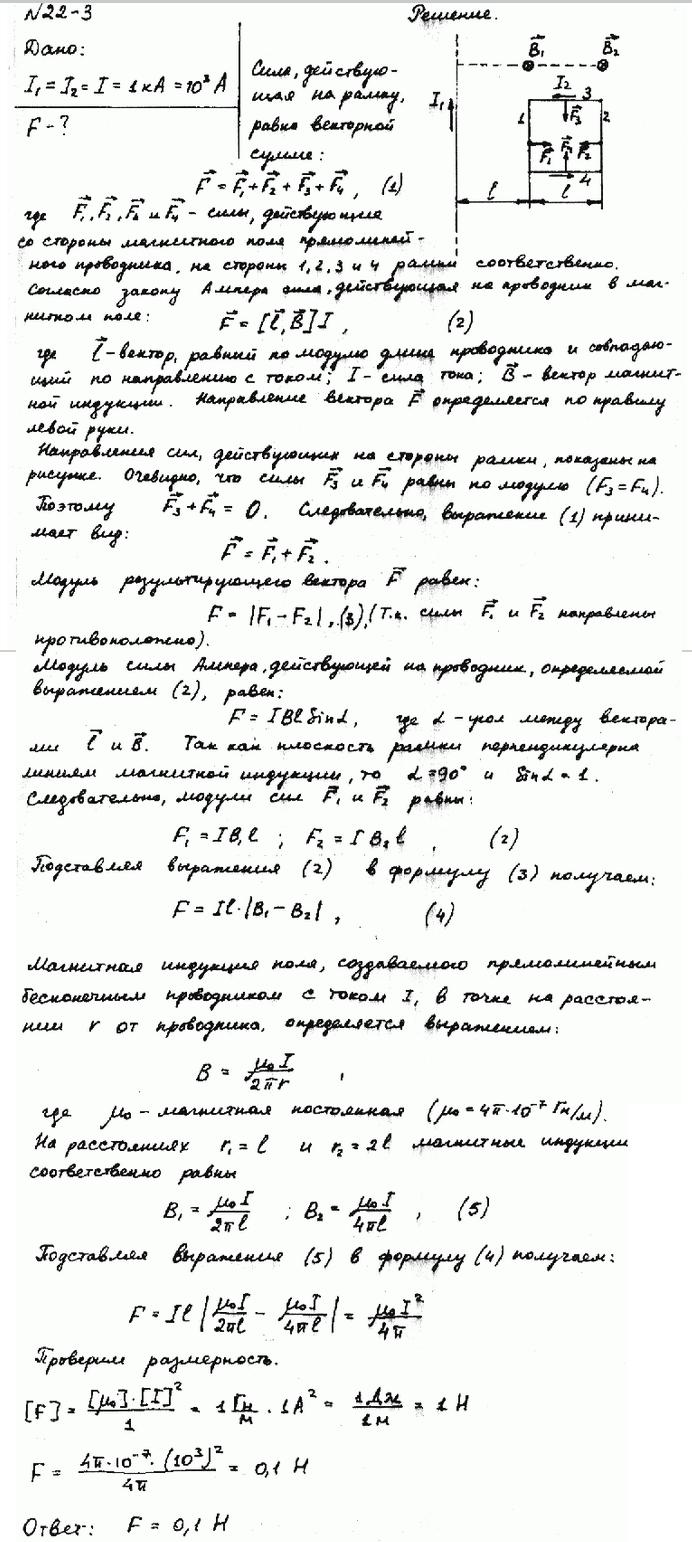 N22-3
Решение.
Дано:
I₁ = I₂ = I = 1кА = 10³ А
F - ?
Сила, действую-
щая на рамку,
равна векторной
сумме:
B⃗₁ B⃗₂
I₁ I₂ 3
1 2
F⃗₃
F⃗₁ F⃗₂
4
l l
F⃗ = F⃗₁ + F⃗₂ + F⃗₃ + F⃗₄ , (1)
где F⃗₁, F⃗₂, F⃗₃ и F⃗₄ - силы, действующие
со стороны магнитного поля прямолиней-
ного проводника, на стороны 1, 2, 3 и 4 рамки соответственно.
Согласно закону Ампера сила, действующая на проводник в маг-
нитном поле: F⃗ = [l⃗, B⃗] I , (2)
где l⃗ - вектор, равный по модулю длине проводника и совпадаю-
щий по направлению с током; I - сила тока; B⃗ - вектор магнит-
ной индукции. Направление вектора F⃗ определяется по правилу
левой руки.
Направления сил, действующих на стороны рамки, показаны на
рисунке. Очевидно, что силы F⃗₃ и F⃗₄ равны по модулю (F₃ = F₄).
Поэтому F⃗₃ + F⃗₄ = 0. Следовательно, выражение (1) прини-
мает вид:
F⃗ = F⃗₁ + F⃗₂ .
Модуль результирующего вектора F⃗ равен:
F = |F₁ - F₂| , (3), (т.к. силы F⃗₁ и F⃗₂ направлены
противоположно).
Модуль силы Ампера, действующей на проводник, определяемой
выражением (2), равен:
F = IBl Sinα, где α - угол между вектора-
ми l⃗ и B⃗. Так как плоскость рамки перпендикулярна
линиям магнитной индукции, то α = 90° и Sinα = 1.
Следовательно, модули сил F⃗₁ и F⃗₂ равны:
F₁ = IB₁l ; F₂ = IB₂l , (2)
Подставляя выражения (2) в формулу (3) получаем:
F = Il·|B₁ - B₂| , (4)
Магнитная индукция поля, создаваемого прямолинейным
бесконечным проводником с током I, в точке на расстоя-
нии r от проводника, определяется выражением:
B = μ₀I / 2πr ,
где μ₀ - магнитная постоянная (μ₀ = 4π·10⁻⁷ Гн/м).
На расстояниях r₁ = l и r₂ = 2l магнитные индукции
соответственно равны
B₁ = μ₀I / 2πl ; B₂ = μ₀I / 4πl , (5)
Подставляя выражения (5) в формулу (4) получаем:
F = Il |μ₀I / 2πl - μ₀I / 4πl| = μ₀I² / 4π
Проверим размерность.
[F] = [μ₀]·[I]² / 1 = 1 Гн/м · 1А² = 1Дж / 1м = 1 Н
F = 4π·10⁻⁷·(10³)² / 4π = 0,1 Н
Ответ: F = 0,1 Н